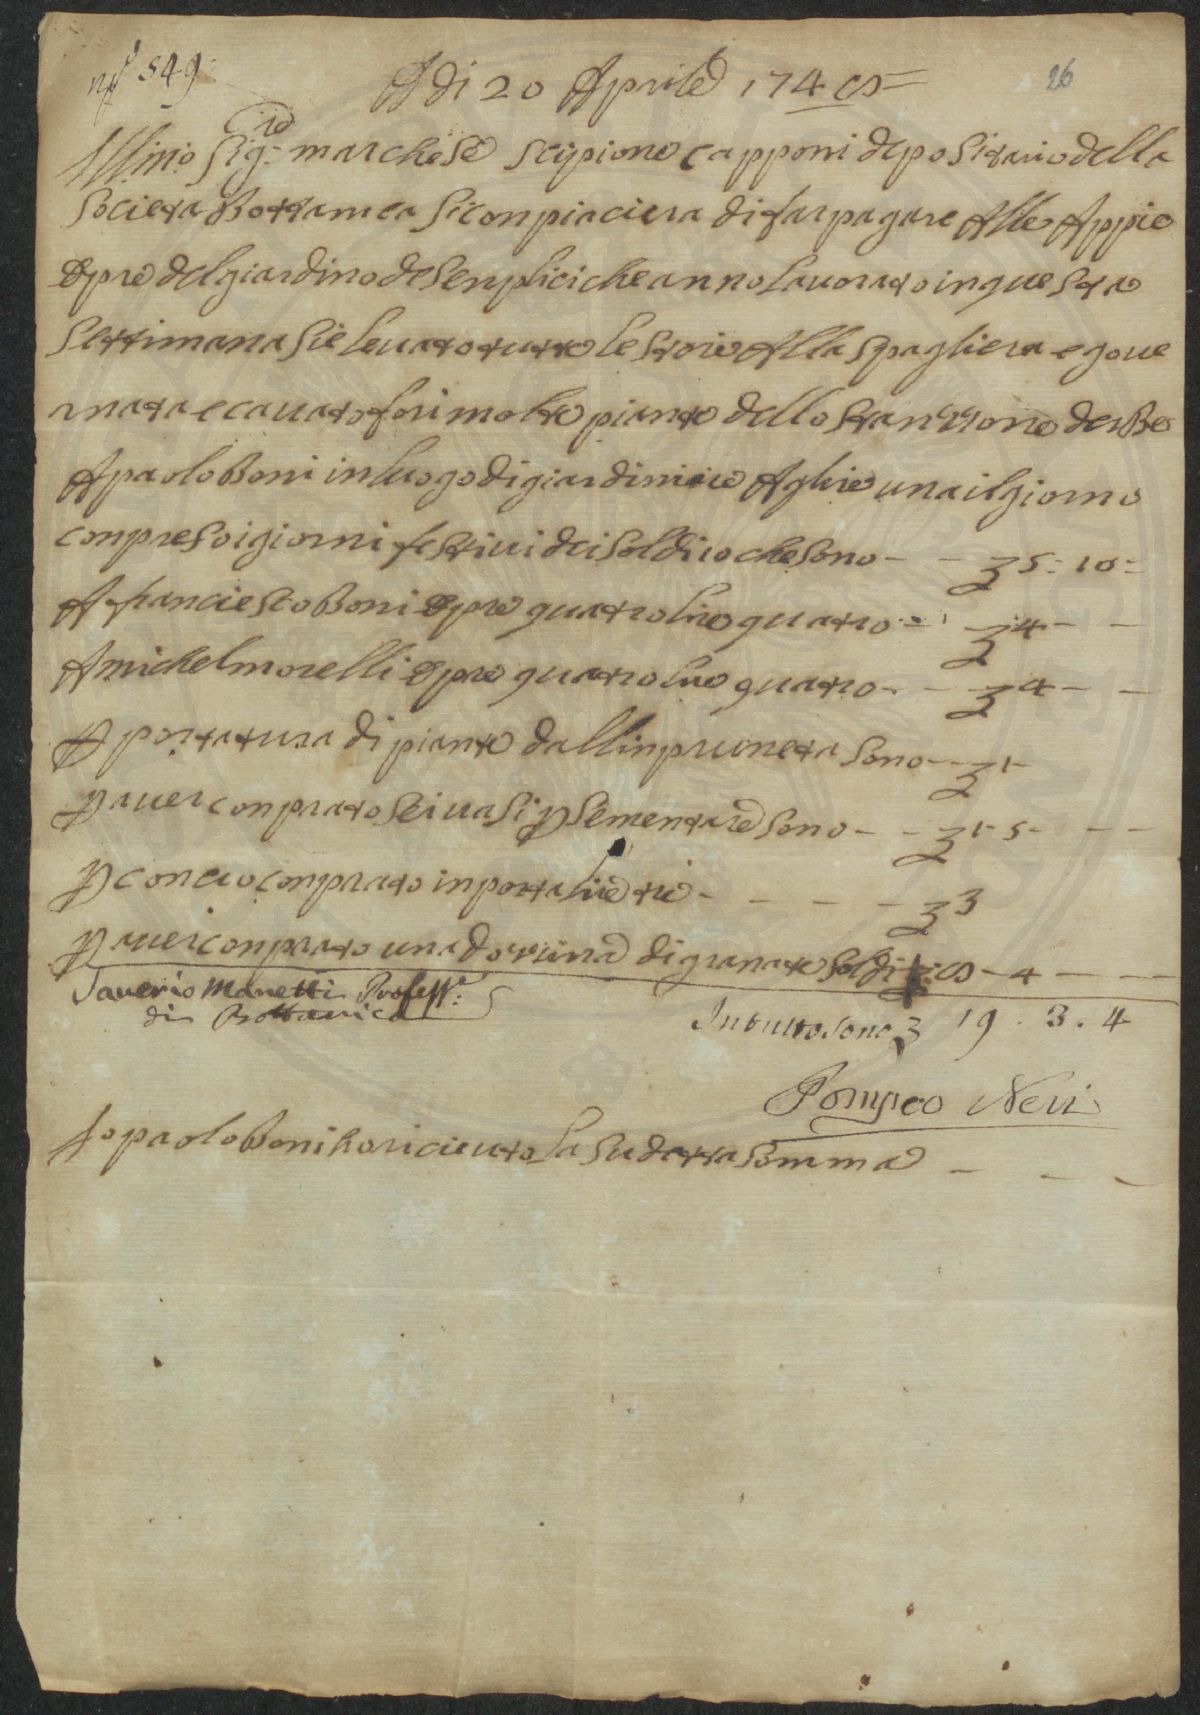 nº 549:
A di 20 Aprile 174 26
Illmo Sig.re marchese scipione capponi depositario della
Societa Bottanica Si conpiaciera di far pagare Alle Appie
Opre del giardino de Senplici che anno lauorato in questa
Settimana Sie leuato tutte le stoie Alla Spagliera e goue
rnata e cauato fori molte piante dello stanzzone der Be
A paolo Boni in luogo di giardiniere A lire una il giorno
conpreso i giorni festiui dei Soldi 10 che sono - - 5: 10:
A franciesco Boni Opre quatro lire quatro - 4 - -
A michel morelli Opre quatro lire quatro - - 4 - -
P portatura di piante dall inpruneta sono - - 1 -
P auer conprato sei uasi P sementare sono - - 1 - 5 - - -
P concio conprato in porta lire tre - - - - 3
P auer conprato una dozzina di granate Soldi - 4 - - -
Saverio Manetti Profess.e
di Bottanica
In tutto sono 19 . 3 . 4
Pompeo Neri
Io paolo Boni ho riceuto la Sudetta Somma - - -